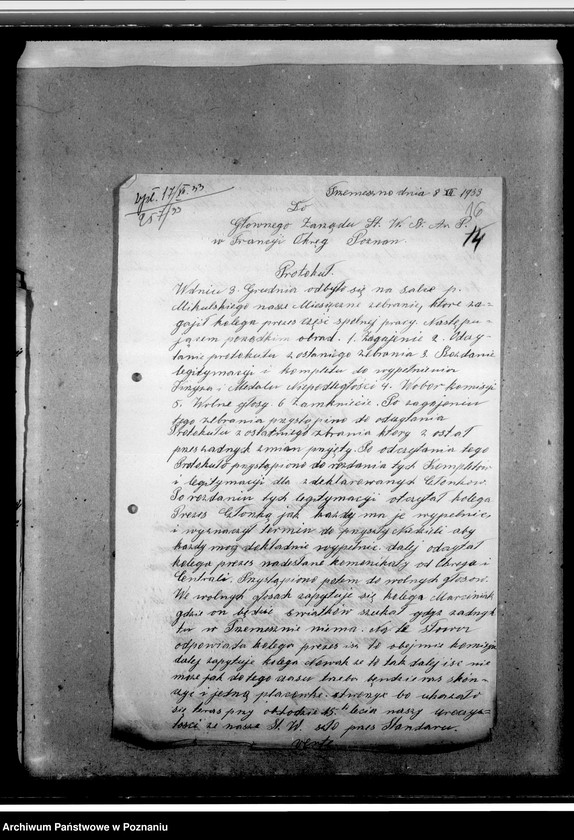 wpł. 17/XII 33
257/33
Trzemeszno dnia 8 XII 1933
16
14
Do
Głównego Zarządu St. W. B. Ar. P.
w Francji Okręg Poznań.
Protokuł.
W dniu 3. Grudnia odbyło się na salce p.
Mikulskiego nasze Miesięczne zebranie, które za-
gajił kolega prezes cześć spolnej pracy. Następu-
jącem porządkim obrad. 1. Zagajenie 2. Odczy-
tanie protokułu z ostaniego zebrania 3. Rozdanie
legitymacyi i kompletu do wypełnienia
Krzyża i Medalu Niepodległości 4. Wobor komisji
5. Wolne głosy. 6 Zamknięcie. Po zagajeniu
tego zebrania przystąpiono do odczytania
Protokułu z ostatniego zbrania ktory z ostał
przez żadnych zmian przyjęty. Po odczytaniu tego
Protokułu przystąpiono do rozdania tych Kompletow
i legitymacyi dla zdeklarowanych Członków.
Po rozdaniu tych legitymacyi odczytał kolega
Prezes Członką jak każdy ma je wypełnic
i wyznaczył termin do przyszły Niedzieli aby
każdy mog dokładnie wypełnic dalej odczytał
kolega prezes nadesłane komonikaty od Okręga i
Centrali. Przystąpiono potem do wolnych głosow.
We wolnych głosach zapytuje się kolega Marciniak
gdzie on będzie światków szukał gdyż żadnych
tu w Trzemesznie niema. Na te
odpowiada kolega prezes isz to obejmie komisja
dalej zapytuje kolega Nowak ze to tak dalej isc nie
może jak do tego czasu trzeba będzie ras skon-
czyc i jedną placówke stworzyc bo ukazało
się teras przy obchodzie 15-to lecia naszy uroczys-
tości ze nasze St. W. szło przes Standaru.
verte
Archiwum Państwowe w Poznaniu